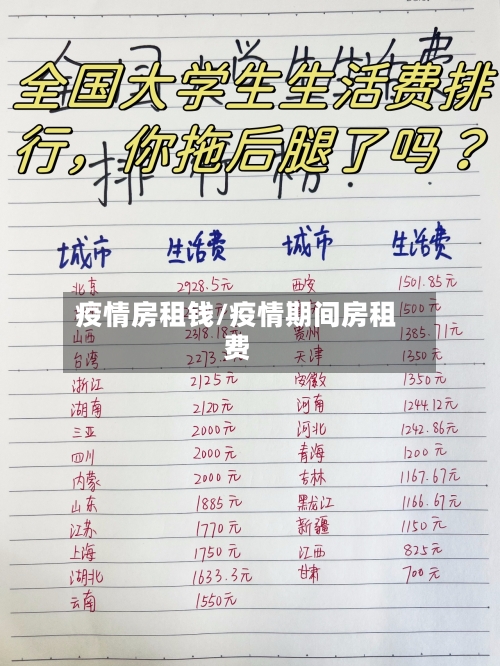 全国大学生生活费
排行榜!
全国大学生生活费排
行，你拖后腿了吗？
城市 生活费 城市 生活费
北京 2928.5元 西安 1501.85元
疫情房租钱/疫情期间房租
费
1500元
山西 2318.18元 贵州 1385.71元
台湾 2273. 天津 1350元
浙江 2125元 安徽 1350元
湖南 2120元 河南 1244.12元
三亚 2000元 河北 1242.86元
四川 2000元 青海 1200元
内蒙 2000元 吉林 1167.67元
山东 1885元 黑龙江 1166.67元
江苏 1770元 新疆 1150元
上海 1750元 江西 825元
湖北 1633.3元 甘肃 700元
云南 1550元